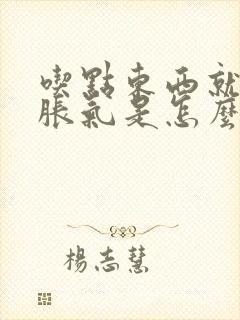 喫點東西就
脹氣是怎麼
楊志慧